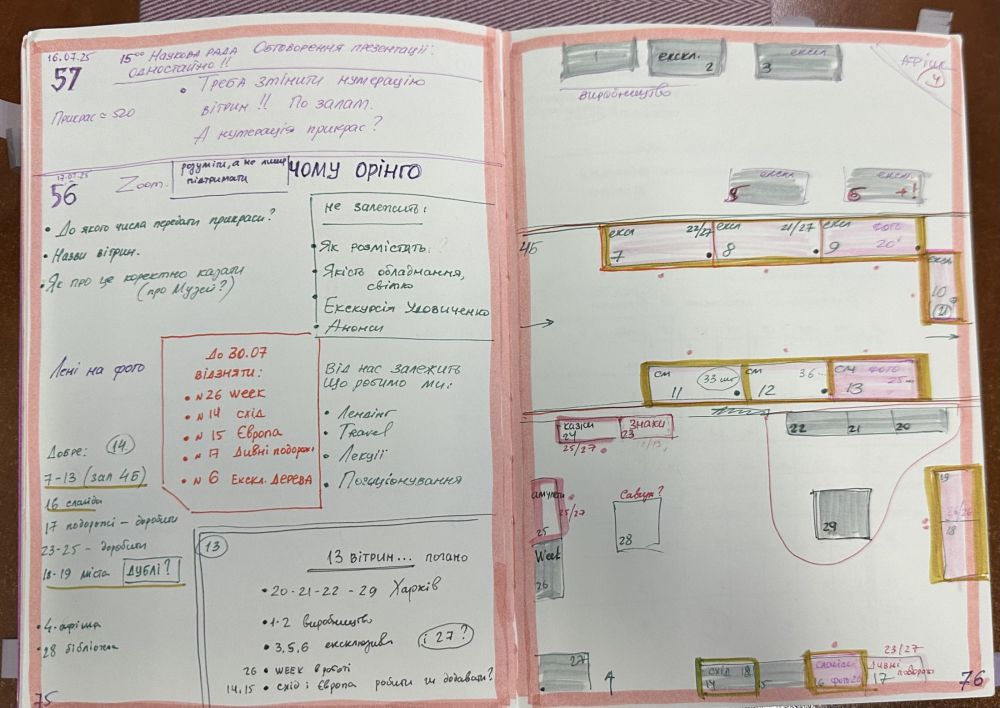 16.07.25
57
15⁰⁰ Наукова рада Обговорення презентації:
одностайно!!
• Треба змінити нумерацію
вітрин!! По залам.
Прикрас ≈ 520
А нумерація прикрас?
17.07.25
56
Zoom.
розуміти, а не лише
підтримати
ЧОМУ ОРІНГО
• До якого числа передати прикраси?
• Назви вітрин.
• Як про це коректно казати
(про Музей?)
не залежить:
• Як розмістять?
• Якість обладнання,
світло
• Екскурсія Удовиченко
• Анонси
Лені на фото
До 30.07
відзняти:
• №26 week
• №14 схід
• №15 Європа
• №17 Дивні подорожі
• №6 Ексkл. дерева
Від нас залежить
Що робимо ми:
• Лендінг
• Travel
• Лекції
• Позиціонування
Добре: 14
7-13 (зал 4Б)
16 слайди
17 подорожі – доробити
23-25 – доробити
18-19 міста ДУБЛІ?
• 4-афіша
• 28 бібліотека
13
13 вітрин... погано
• 20-21-22-29 Харків
• 1-2 виробництво
• 3,5,6 ексклюзиви і 27?
26 • week в роботі
14,15 • схід і Європа робити чи додавати?
75
1
екскл. 2
ексл 3
Афіша
4
виробництво
ексл
ексл. 6 +!
4Б
ексл 22/27
7
ексл 21/27
8
ексл фото
9 20
ексл
10
21
см
11 33 шт
см 36
12
см фото
13 25
казки
24
25/27
Знаки
23
22 21 20
амулети
25/27
25
Савур?
28
29
19
18
Week
26
27
4
схід 18
14
15
слайди
16 фото 20
23/27
Дивні
17 подорожі
76